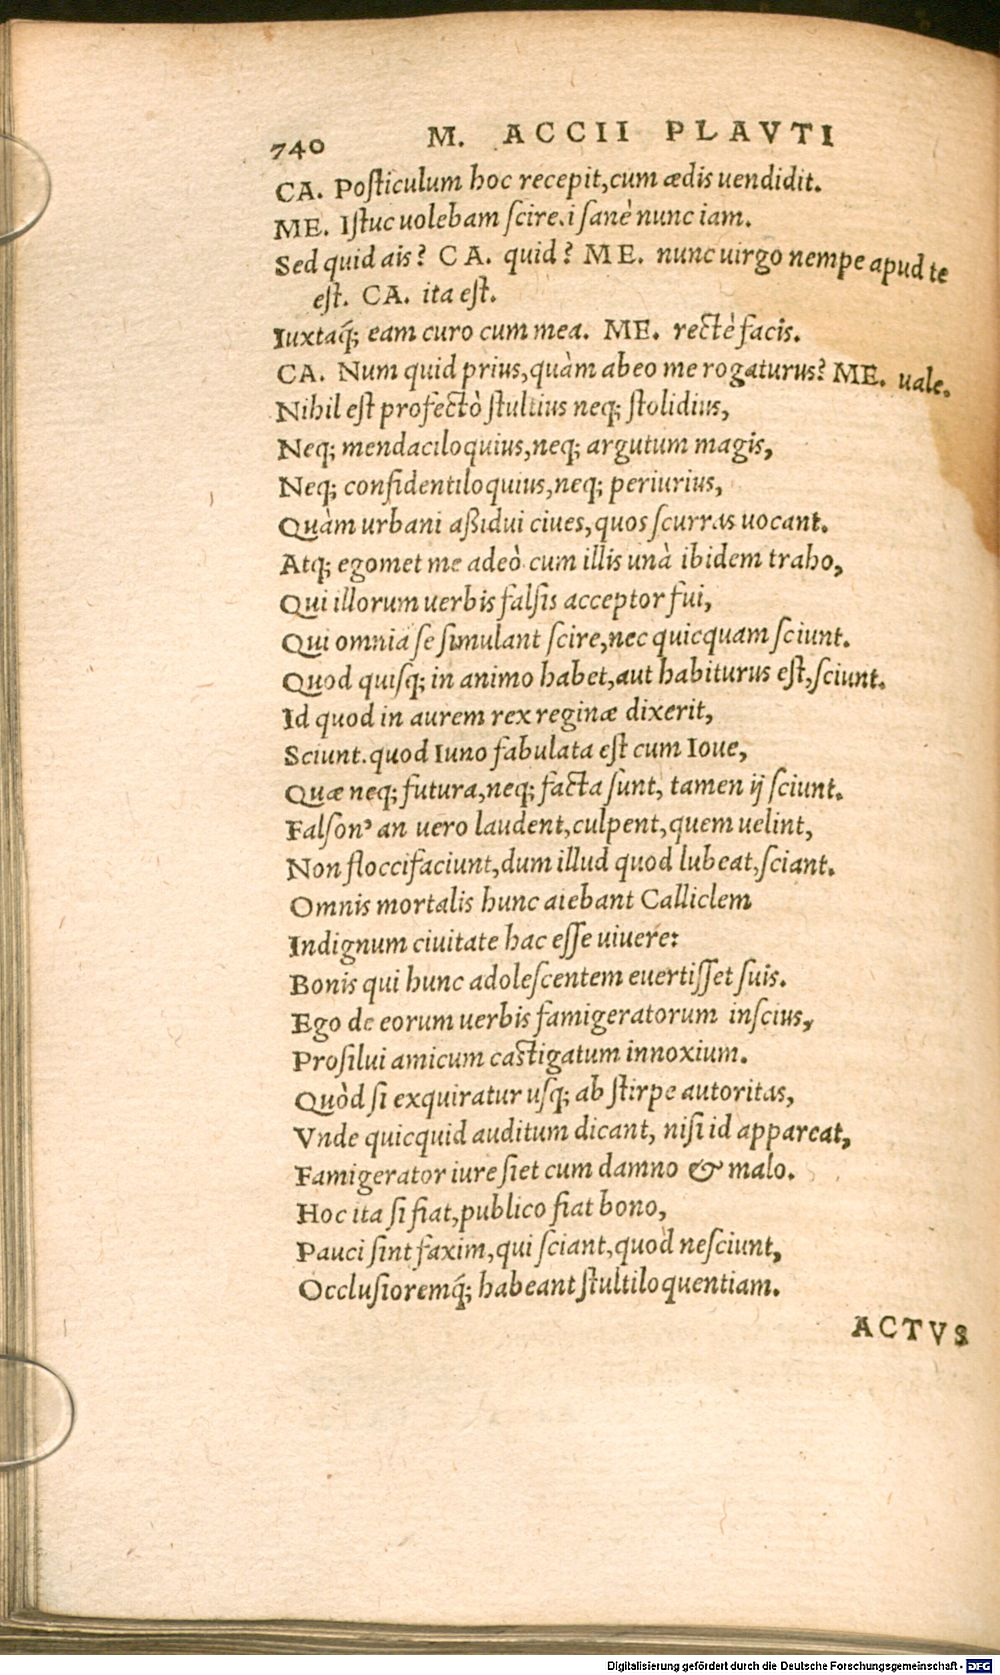 740 M. ACCII PLAVTI
CA. Poſticulum hoc recepit,cum ædis uendidit.
ME. Iſtuc uolebam ſcire.i ſanè nunc iam.
Sed quid ais? CA. quid? ME. nunc uirgo nempe apud te
eſt. CA. ita eſt.
Iuxtaq́; eam curo cum mea. ME. rectè facis.
CA. Num quid prius,quàm abeo me rogaturus? ME. uale.
Nihil eſt profectò ſtultius neq; ſtolidius,
Neq; mendaciloquius,neq; argutum magis,
Neq; confidentiloquius,neq; periurius,
Quàm urbani aßidui ciues,quos ſcurras uocant.
Atq; egomet me adeò cum illis unà ibidem traho,
Qui illorum uerbis falſis acceptor fui,
Qui omnia ſe ſimulant ſcire,nec quicquam ſciunt.
Quod quiſq; in animo habet,aut habiturus eſt,ſciunt.
Id quod in aurem rex reginæ dixerit,
Sciunt.quod Iuno fabulata eſt cum Ioue,
Quæ neq; futura,neq; facta ſunt, tamen ij ſciunt.
Falſon' an uero laudent,culpent,quem uelint,
Non floccifaciunt,dum illud quod lubeat,ſciant.
Omnis mortalis hunc aiebant Calliclem
Indignum ciuitate hac eſſe uiuere:
Bonis qui hunc adoleſcentem euertiſſet ſuis.
Ego de eorum uerbis famigeratorum inſcius,
Proſilui amicum caſtigatum innoxium.
Quòd ſi exquiratur uſq; ab ſtirpe autoritas,
Vnde quicquid auditum dicant, niſi id appareat,
Famigerator iure ſiet cum damno & malo.
Hoc ita ſi fiat,publico fiat bono,
Pauci ſint faxim,qui ſciant,quod neſciunt,
Occluſioremq́; habeant ſtultiloquentiam.
ACTVS
Digitalisierung gefördert durch die Deutsche Forschungsgemeinschaft - DFG